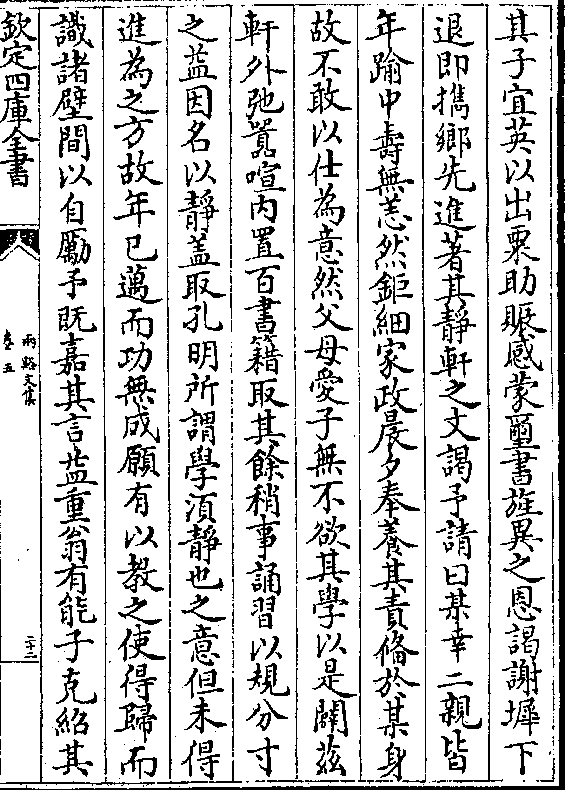 其子宜英以出粟助賑感蒙璽書旌異之恩謁謝墀下
退即擕鄉先進著其靜軒之文謁予請曰某幸二親皆
年踰中壽無恙然鉅細家政晨夕奉養其責俻於某身
故不敢以仕為意然父母愛子無不欲其學以是闢兹
軒外弛囂喧内置百書籍取其餘稍事誦習以規分寸
之益因名以靜盖取孔明所謂學湏靜也之意但未得
進為之方故年已邁而功無成願有以教之使得歸而
識諸壁間以自勵予既嘉其言益重翁有能子克紹其
欽定四庫全書
兩谿文集
卷五
二十二